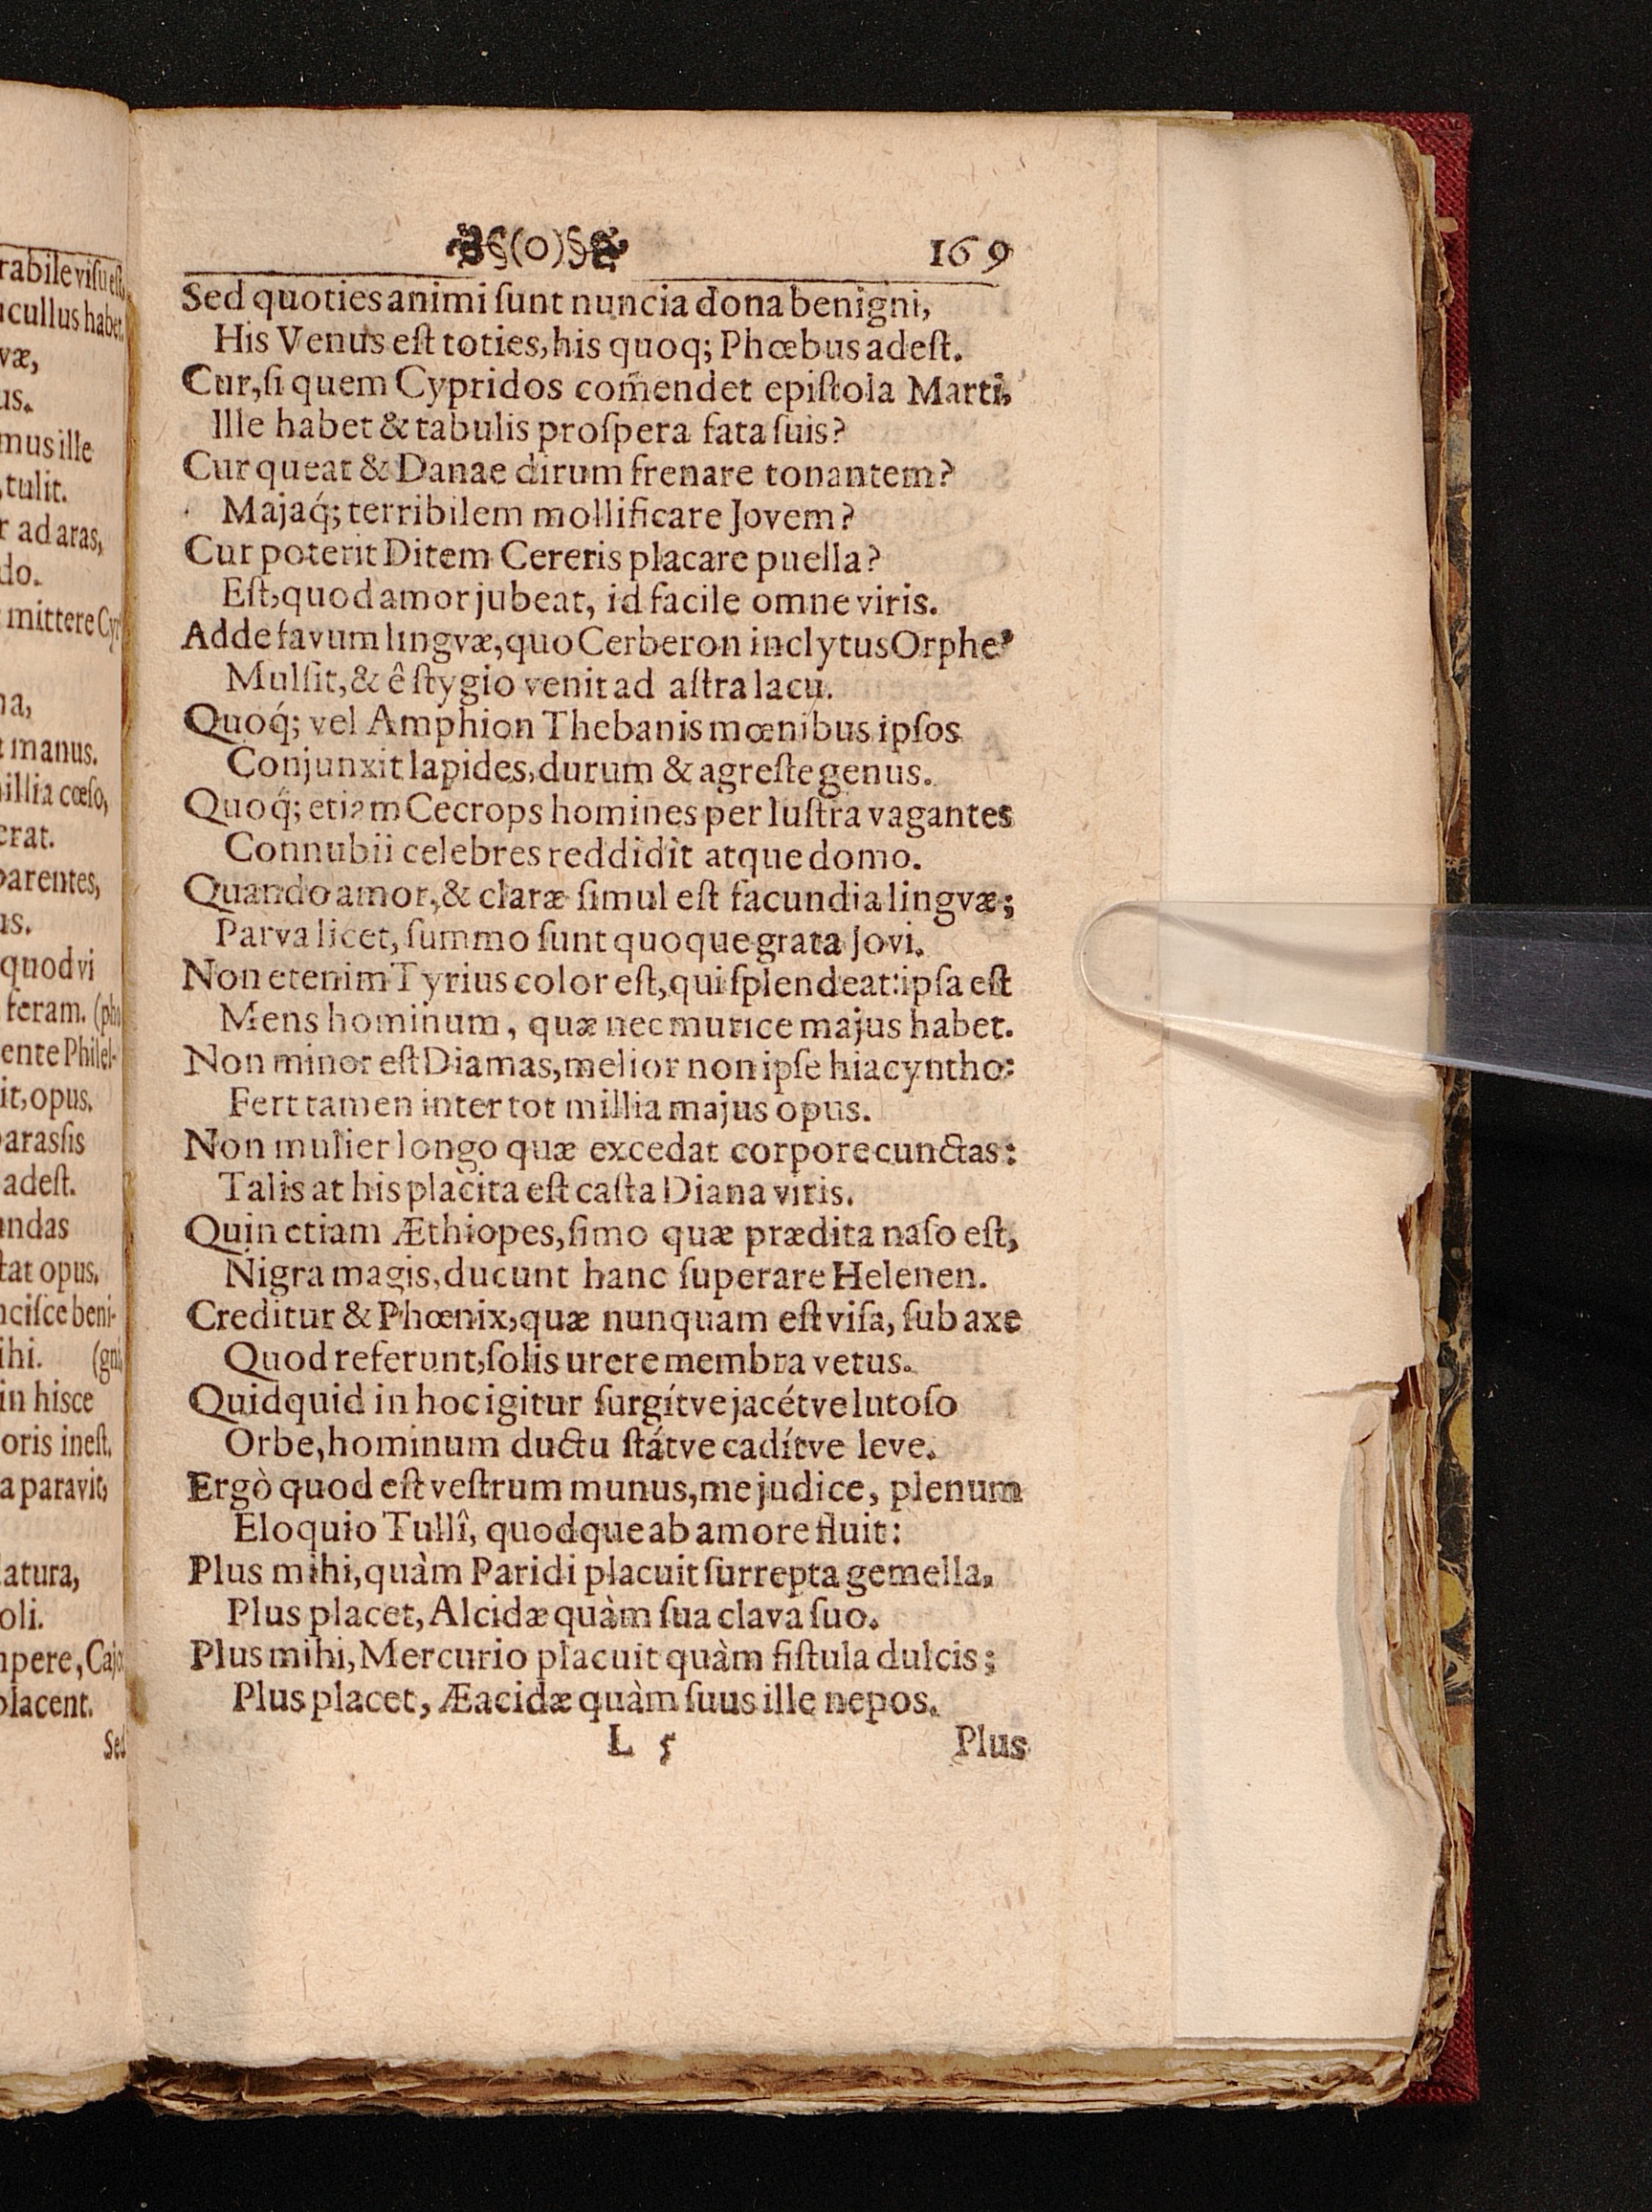 rabile visu est
ucullus habet.
væ,
us.
mus ille
tulit.
r ad aras,
do.
mittere Cyr
na,
t manus.
illia cœso,
erat.
parentes,
us.
quod vi
feram. (phi
ente Philel-
it, opus.
parassis
adest.
undas
tat opus.
ncisce beni-
ihi. (gni
in hisce
oris inest.
a paravit,
atura,
oli.
mpere, Cajo
placent.
Sed
§(o)§ 169
Sed quoties animi ſunt nuncia dona benigni,
His Venus eſt toties, his quoq; Phœbus adeſt.
Cur, ſi quem Cypridos com̃endet epiſtola Marti,
Ille habet & tabulis proſpera fata ſuis?
Cur queat & Danae dirum frenare tonantem?
Majaq́; terribilem mollificare Jovem?
Cur poterit Ditem Cereris placare puella?
Eſt, quod amor jubeat, id facile omne viris.
Adde favum lingvæ, quo Cerberon inclytus Orphe⁹
Mulſit, & ê ſtygio venit ad aſtra lacu.
Quoq́; vel Amphion Thebanis mœnibus ipſos
Conjunxit lapides, durum & agreſte genus.
Quoq́; etiam Cecrops homines per luſtra vagantes
Connubii celebres reddidit atque domo.
Quando amor, & claræ ſimul eſt facundia lingvæ;
Parva licet, ſummo ſunt quoque grata Jovi.
Non etenim Tyrius color eſt, qui ſplendeat: ipſa eſt
Mens hominum, quæ nec murice majus habet.
Non minor eſt Diamas, melior non ipſe hiacyntho:
Fert tamen inter tot millia majus opus.
Non mulier longo quæ excedat corpore cunctas:
Talis at his placita eſt caſta Diana viris.
Quin etiam Æthiopes, ſimo quæ prædita naſo eſt,
Nigra magis, ducunt hanc ſuperare Helenen.
Creditur & Phœnix, quæ nunquam eſt viſa, ſub axe
Quod referunt, ſolis urere membra vetus.
Quidquid in hoc igitur ſurgítve jacétve lutoſo
Orbe, hominum ductu ſtátve cadítve leve.
Ergò quod eſt veſtrum munus, me judice, plenum
Eloquio Tullî, quodque ab amore fluit:
Plus mihi, quàm Paridi placuit ſurrepta gemella,
Plus placet, Alcidæ quàm ſua clava ſuo.
Plus mihi, Mercurio placuit quàm fiſtula dulcis;
Plus placet, Æacidæ quàm ſuus ille nepos.
L 5 Plus